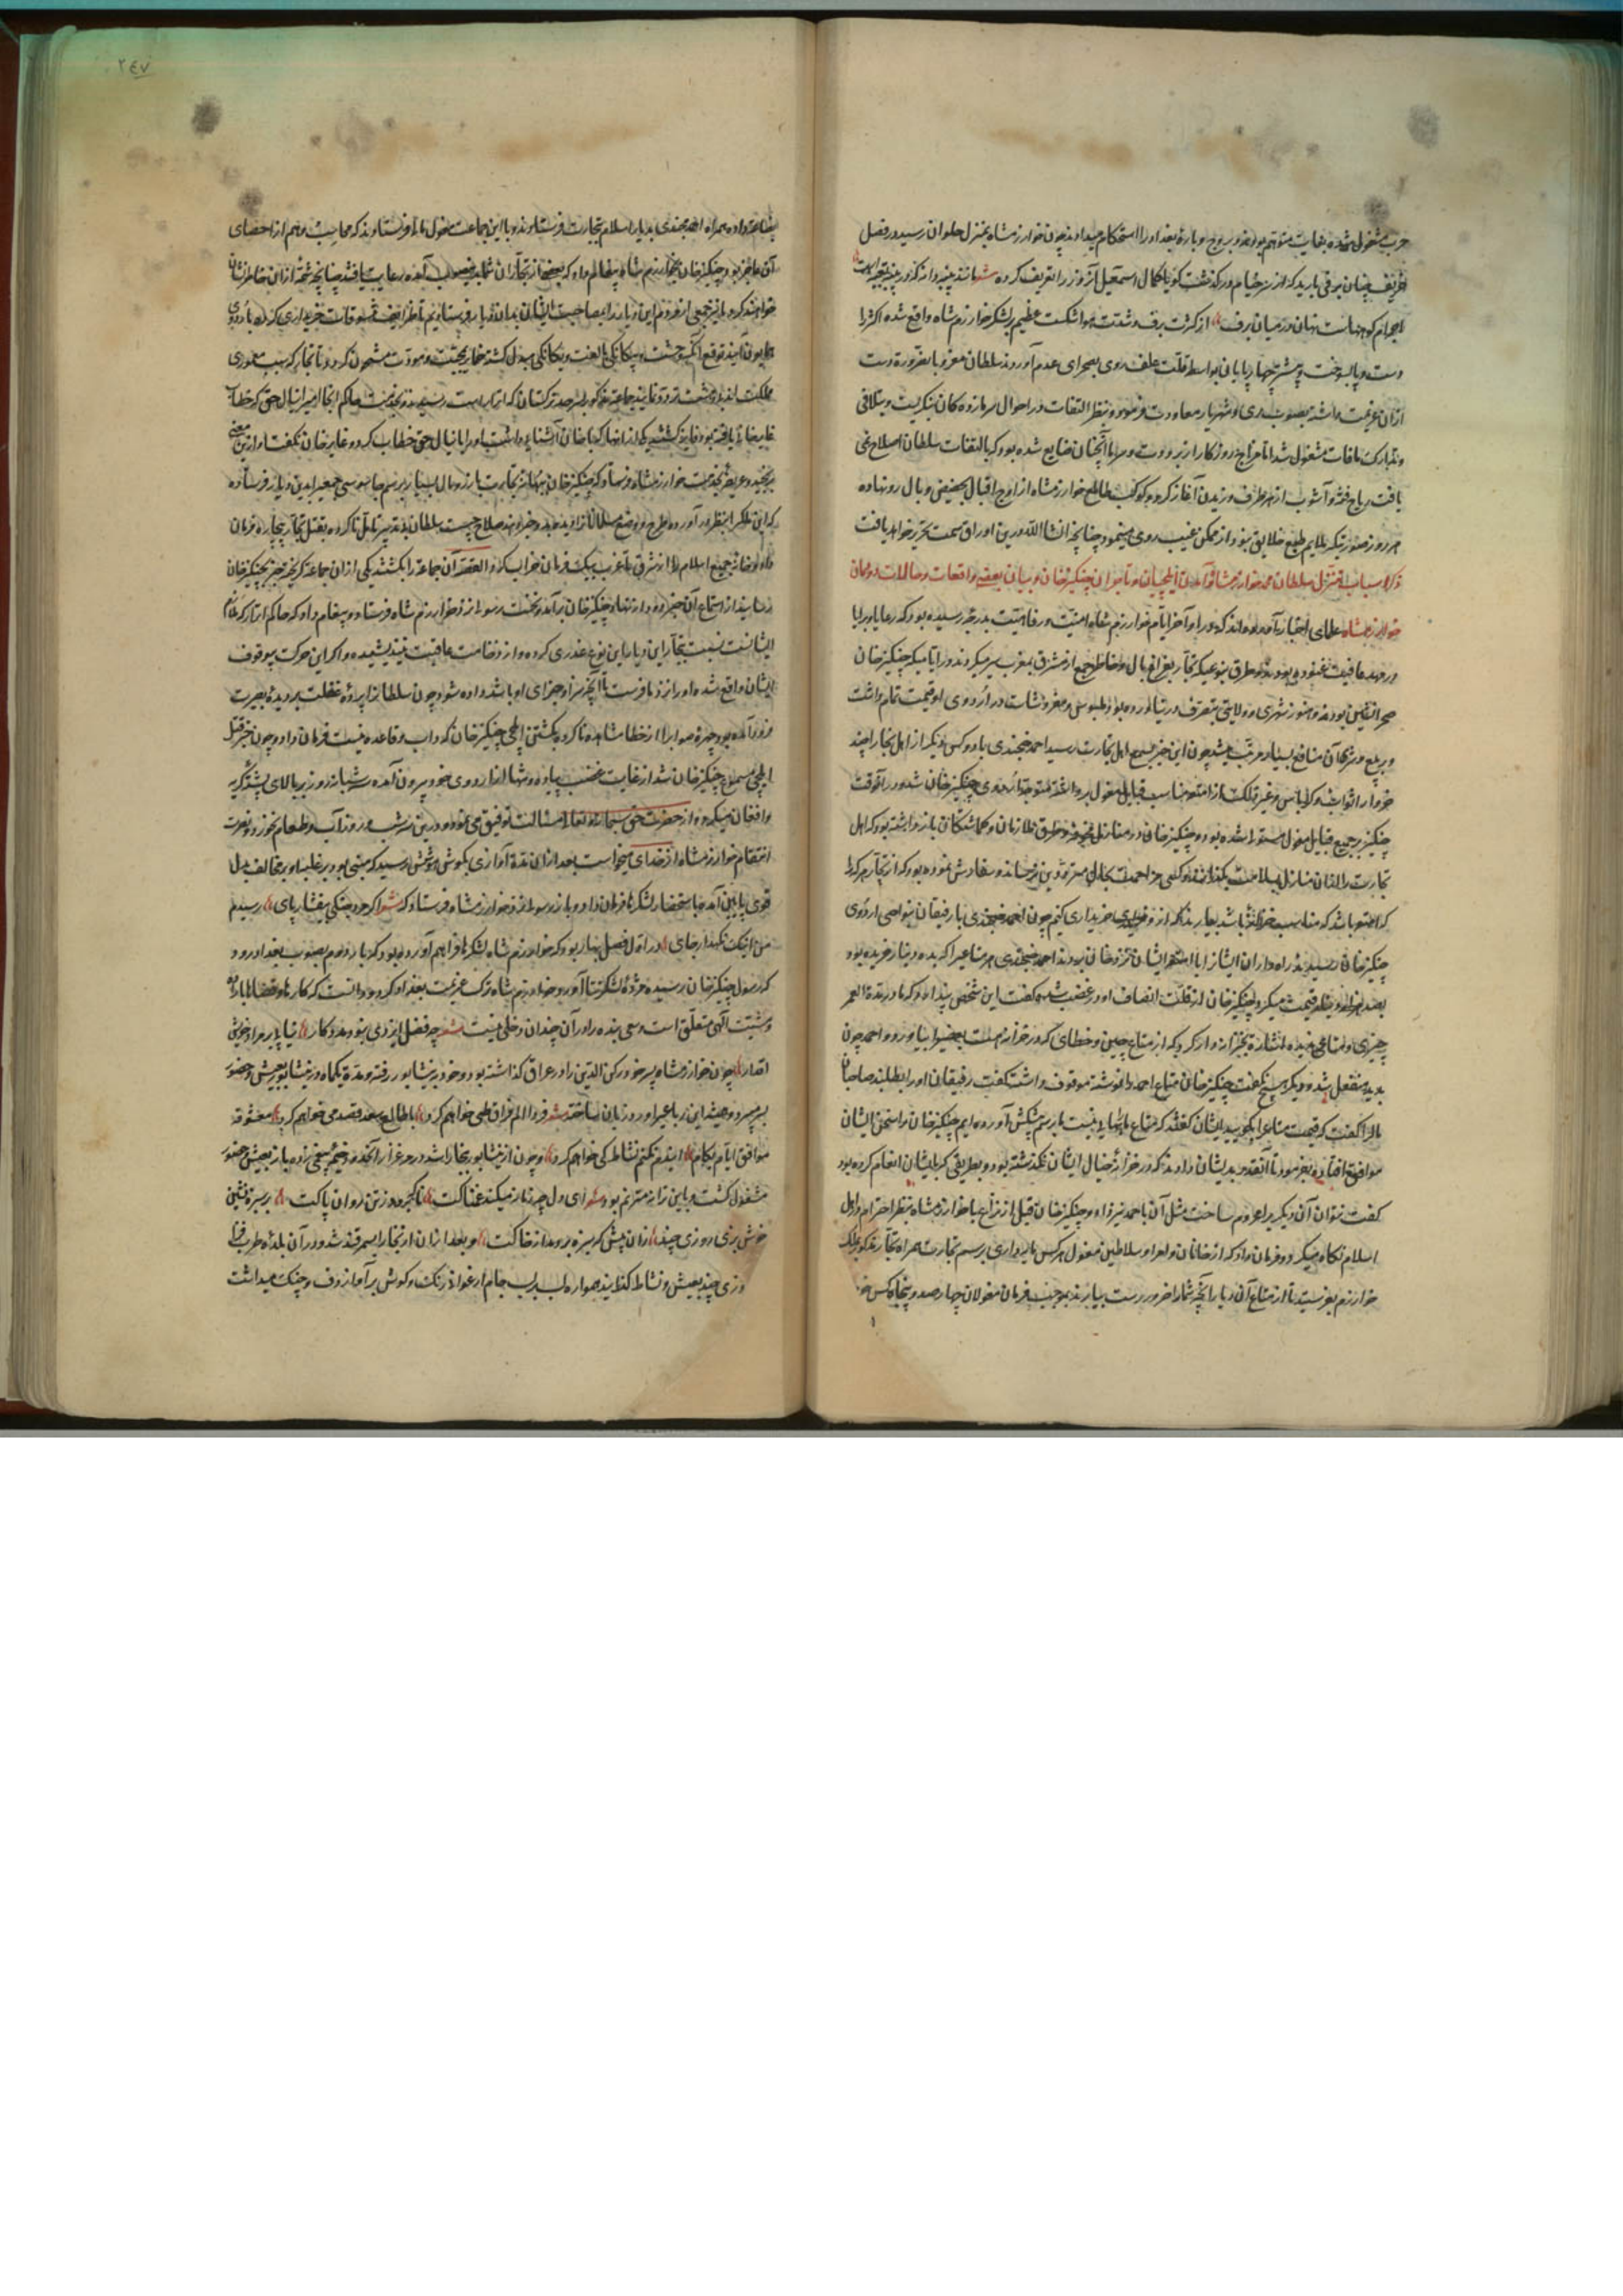 حرب مشغول شده بغایت متوهم بودند و بروج و بارهٔ بغداد را استحکام میدادند چون خوارزمشاه بمنزل حلوان رسید در فصل
خریف چنان برفی بارید که از سر خیام در گذشت گویا کمال اسمعیل آنروز را تعریف کرده شعر مانند پنبه دانه که در پنبه تعبیه است
اجرام کوههاست نهان در میان برف از کثرت برف و شدت هوا شکست عظیم بلشکر خوارزم شاه واقع شده اکثر را
دست و پا بسوخت و بیشتر چهارپایان بواسطه قلت علف روی بصحرای عدم آوردند سلطان مغرور بالضرورة دست
ازان عزیمت داشته بصوب ری و شهریار معاودت فرمود و بنظر التفات در احوال سرمازدهکان نگریست و بتلافی
و تدارک مافات مشغول شد اما مزاج روزکار از برودت و سرما آنچنان ضایع شده بود که بالتفات سلطان اصلاح نمی
یافت ریاح فتنه و آشوب از هر طرف وزیدن آغاز کرد و کوکب طالع خوارزمشاه از اوج اقبال بحضیض وبال رو نهاده
هر روز صورتیکه ملایم طبع خلایق نبود از ممکن غیب روی مینمود چنانچه انشاالله درین اوراق سمت تحریر خواهد یافت
ذکر اسباب تنزل سلطان محمد خوارزمشاه و آمدن ایلچیان و تاجران چنگیزخان و بیان بعضی واقعات و حالات دودمان
خوارزمشاه علمای اخبار آورده اند که در اواخر ایام خوارزم شاه امنیت و رفاهیت بدرجه رسیده بود که رعایا و برایا
در مهد عافیت غنوده بودند و طرق بنوعیکه تجار بفراغ بال و خاطر جمع از مشرق بمغرب سیر میکردند در ایامیکه چنگیزخان
صحرانشین بودند و هنوز شهری و ولایتی بتصرف در نیاورده بود ملبوس و مفروشات در اردوی او قیمت تمام داشت
و بر بیع و شرای آن منافع بسیار مرتب میشد چون این خبر بسمع اهل تجارت رسید احمد خجندی با دو کس دیگر از اهل بخارا چند
خروار اثواب و کرباس و غیر ذلک از امتعه مناسب قبایل مغول برداشته متوجه اردوی چنگیزخان شد و در آنوقت
چنگیز بر جمیع قبایل مغول مستولی شده بود و چنگیزخان در منازل مخوفه و طرق ملازمان و کماشتکان بازداشته بود که اهل
تجارت را ازان منازل بسلامت بکذرانند و کسی مزاحمت بحال مترددین نرساند و سفارش نموده بود که از تجار هر که را
که امتعه باشد که مناسب خزانه باشد بیارند تا از وی خریداری کنیم چون احمد خجندی با رفیقان بنواحی اردوی
چنگیزخان رسیدند راه داران ایشانرا با امتعه ایشان نزد خان بردند احمد خجندی هر متاعی را که بده دینار خریده بود
بصد هزار دینار قیمت میکرد چنگیزخان از قلت انصاف او در غضب شد و کفت این شخص پنداشته که ما در مدة العمر
چیزی و متاعی ندیده اشارة بخزانه دار کرد که از متاع چین و خطای که در خزانه هست بعضی را بیاورد و احمد چون
بدید منفعل شد و دیگر هیچ نگفت چنگیزخان متاع احمد را نوشته موقوف داشت گفت رفیقان او را بطلبند صاحبان
مالرا کفت که قیمت متاعها بگویید ایشان گفتند که متاع ما را بهایی نیست ما برسم پیشکش آورده ایم چنگیزخان را سخن ایشان
موافق افتاده بفرمود تا آنقدر بدیشان دادند که در خزانه خیال ایشان نکذشته بود و بطریقی که بایشان انعام کرده بود
کفت نتوان آن دیگر را محروم ساخت مثل آن با احمد نیز داد و چنگیزخان قبل از نزاع با خوارزمشاه بنظر احترام در اهل
اسلام نکاه میکرد و فرمان داد که از خانان و امرا و سلاطین مغول هر کس مایه داری برسم تجارت همراه تجار مذکور بملک
خوارزم بفرستید تا از متاع آن دیار آنچه شمارا ضرور است بیارند بموجب فرمان مغولان چهار صد و پنجاه کس
٢٤٧
بضاعة داده همراه احمد خجندی بدیار اسلام بتجارت فرستادند و با این جماعت مغول مال فرستادند که محاسب وهم از احصای
آن عاجز بود و چنگیزخان بخوارزم شاه پیغام داد که بعضی از تجاران شما بدینصوب آمده رعایت یافتند چنانچه شمه ازان خاطر نشان
خواهند کرد ما نیز جمعی از مردم این دیار را بمصاحبت ایشان بدان دیار فرستادیم تا ظرایف متنوعات خریداری کرده باردوی
همایون آیند توقع آنکه وحشت و بیگانکی بالفت و یکانکی مبدل کشته ضمایر بمحبت و مودت مشحون کردد تا تجار که سبب معموری
مملکت اند بی دهشت تردد نمایند جماعة مذکور بسرحد ترکستان که اترار است رسیدند و بخدمت حاکم آنجا امیر اینال حق که خطاب
غایرخانی یافته بود فایز کشتند یکی از آنها که با خان آشنایی داشت او را باینال حق خطاب کرد و غایرخان نکفت او ازین معنی
برنجید و عریضه بخدمت خوارزمشاه فرستاد که چنگیزخان ببهانه تجارت با زر و مال بسیار برسم جاسوسی جمعی را بدین دیار فرستاده
که این ملک را بنظر در آورده طرح و وضع مسلمانان را دیده بدو خبر برند صلاح چیست سلطان بی تدبیر تامل ناکرده بقتل تجار بیچاره فرمان
داد و خانه جمیع اسلام را از شرق تا غرب بیک فرمان خراب کرد و القصه آن جماعة را بکشتند یکی ازان جماعة گریخته خبر بچنگیزخان
رسانید از استماع آن خبر دود از نهاد چنگیزخان برآمد و نخست رسول نزد خوارزم شاه فرستاد و پیغام داد که حاکم اترار که غلام
ایشانست نسبت بتجار این دیار این نوع غدری کرده و از وخامت عاقبت نیندیشیده و اکر این حرکت بیوقوف
ایشان واقع شده او را نزد ما فرست تا آنچه سزا و جزای او باشد داده شود چون سلطان را پردهٔ غفلت بر دیدهٔ بصیرت
فرو آمده بود چهرهٔ صواب را از خطا مشاهده ناکرده بکشتن ایلچی چنگیزخان که داب و قاعده نیست فرمان داد و چون خبر قتل
ایلچی مسموع چنگیزخان شد از غایت غضب پیاده و تنها از اردوی خود بیرون آمده سه شبانه روز بر بالای پشته کریه
و افغان میکرد و از حضرت حق سبحانه و تعالی مسالت توفیق می نمود و درین سه شب و روز آب و طعام نخورد و نصرت
انتقام خوارزمشاه از خدای میخواست بعد ازان مدة آوازی بکوش هوشش رسید که مبنی بود بر غلبه او بر مخالف بدل
قوی پایین آمد و باستحضار لشکرها فرمان داد و باز رسول نزد خوارزمشاه فرستاد که شعر اکر مرد جنکی بیفشار پای رسیدم
من اینک نکهدار جای در اول فصل بهار بود که خوارزم شاه لشکرها فراهم آورده بود که بار دوم بصوب بغداد رود
که رسول چنگیزخان رسیده مژدهٔ لشکر تتار آورد خوارزم شاه ترک عزیمت بغداد کرد و دانست که کارها و قضاها باراده
و مشیت الهی متعلق است و سعی بنده را در آن چندان دخلی نیست شعر چو فضل ایزدی نبود مدد کار نیاید بر مراد خویش
اقدار چون خوارزمشاه پسر خود رکن الدین را در عراق کذاشته بود و خود بنیشابور رفته و مدة یکماه در نیشابور بعیش و حضور
بسر میبرد و همیشه این رباعی را ورد زبان ساخته شعر فردا الم فراق طی خواهم کرد با طالع سعد قصد می خواهم کرد معشوقه
موافق ایام بکام ایندم نکنم نشاط کی خواهم کرد و چون از نیشابور ببخارا شد در مرغزار آنحدود خیمه سقفی زده باز بعیش و حضور
مشغول کشت و باین ترانه مترنم بود شعر ای دل چو زمانه میکند غمناکت ناکه برود ز تن روان پاکت بر سبزه نشین
خوش بزی روزی چند زان پیش که سبزه بردمد از خاکت و بعد ازان از بخارا بسمرقند شد و در آن بلدهٔ طرب فزا
روزی چند بعیش و نشاط کذرانید همواره لب بر لب جام ارغوان رنک و کوش بر آواز دف و چنک میداشت